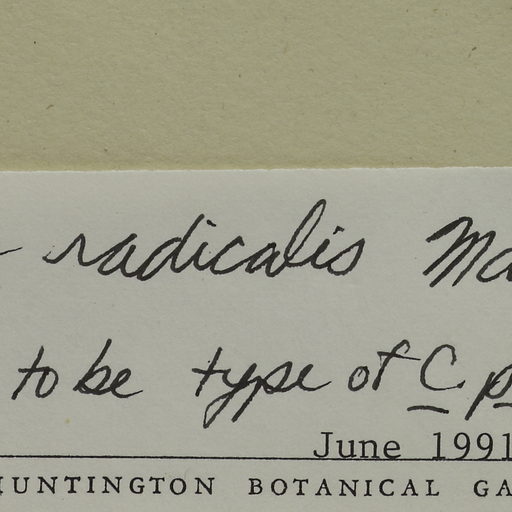 radicalis Ma
to be type of C p
June 1991
HUNTINGTON BOTANICAL GA